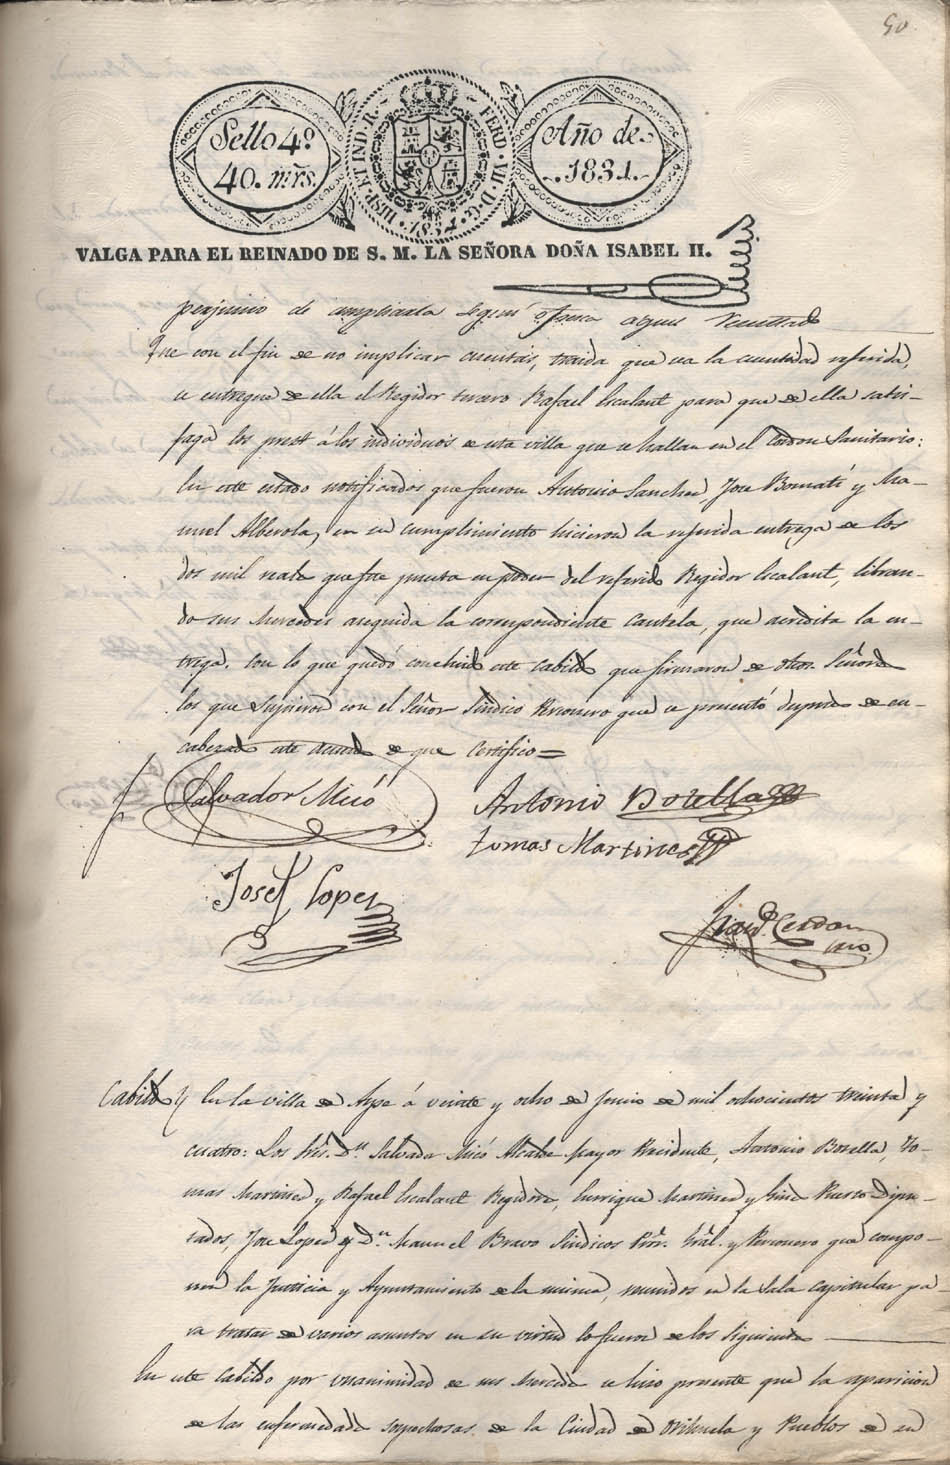 50
Sello 4º
40. mrs.
HISP. ET IND. R. FERD. VII. D. G. 1834.
Año de
1834.
VALGA PARA EL REINADO DE S. M. LA SEÑORA DOÑA ISABEL II.
perjuicio de ampliarla segun
Que con el fin de no implicar cuentas, traida que sea la cantidad referida,
se entregue de ella el Regidor tercero Rafael Escalant para que de ella satis-
faga los prest á los individuos de esta villa que se hallan en el Cordon Sanitario:
En este estado notificados que fueron Antonio Sanchez, Jose Bernatí y Ma-
nuel Alberola, en su cumplimiento hicieron la referida entrega de los
dos mil reales que fue puesta en poder del referido Regidor Escalant, libran-
do sus Mercedes seguida la correspondiente Cautela, que acredita la en-
trega. Con lo que quedó concluido este Cabildo que firmaron de dhos. Señores
los que supieron con el Señor Sindico Personero que se presentó despues de en-
cabezado este Acuerdo de que Certifico =
Salvador Micó
Antonio Botella
tomas Martines
Josef Lopez
Cerdan
Cabildo
En la villa de Aspe á veinte y ocho de Junio de mil ochocientos treinta y
cuatro: Los Sres. Dn. Salvador Micó Alcalde Mayor Presidente, Antonio Botella, To-
mas Martinez y Rafael Escalant Regidores, Enrrique Martinez y Gines Puerto Dipu-
tados, Jose Lopez y Dn. Manuel Bravo Sindicos Pror. Gral. y Personero que compo-
nen la Justicia y Ayuntamiento de la misma, reunidos en la Sala Capitular pa
ra tratar de varios asuntos en su virtud lo fueron de los siguientes
En este Cabildo por unanimidad de sus Mercedes se hizo presente que la aparicion
de las enfermedades sospechosas de la Ciudad de Orihuela y Pueblos de su